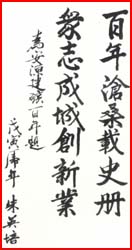 百年滄桑載史册
衆志成城創新業
為安源建礦百年題
戊寅虎年 朱英培